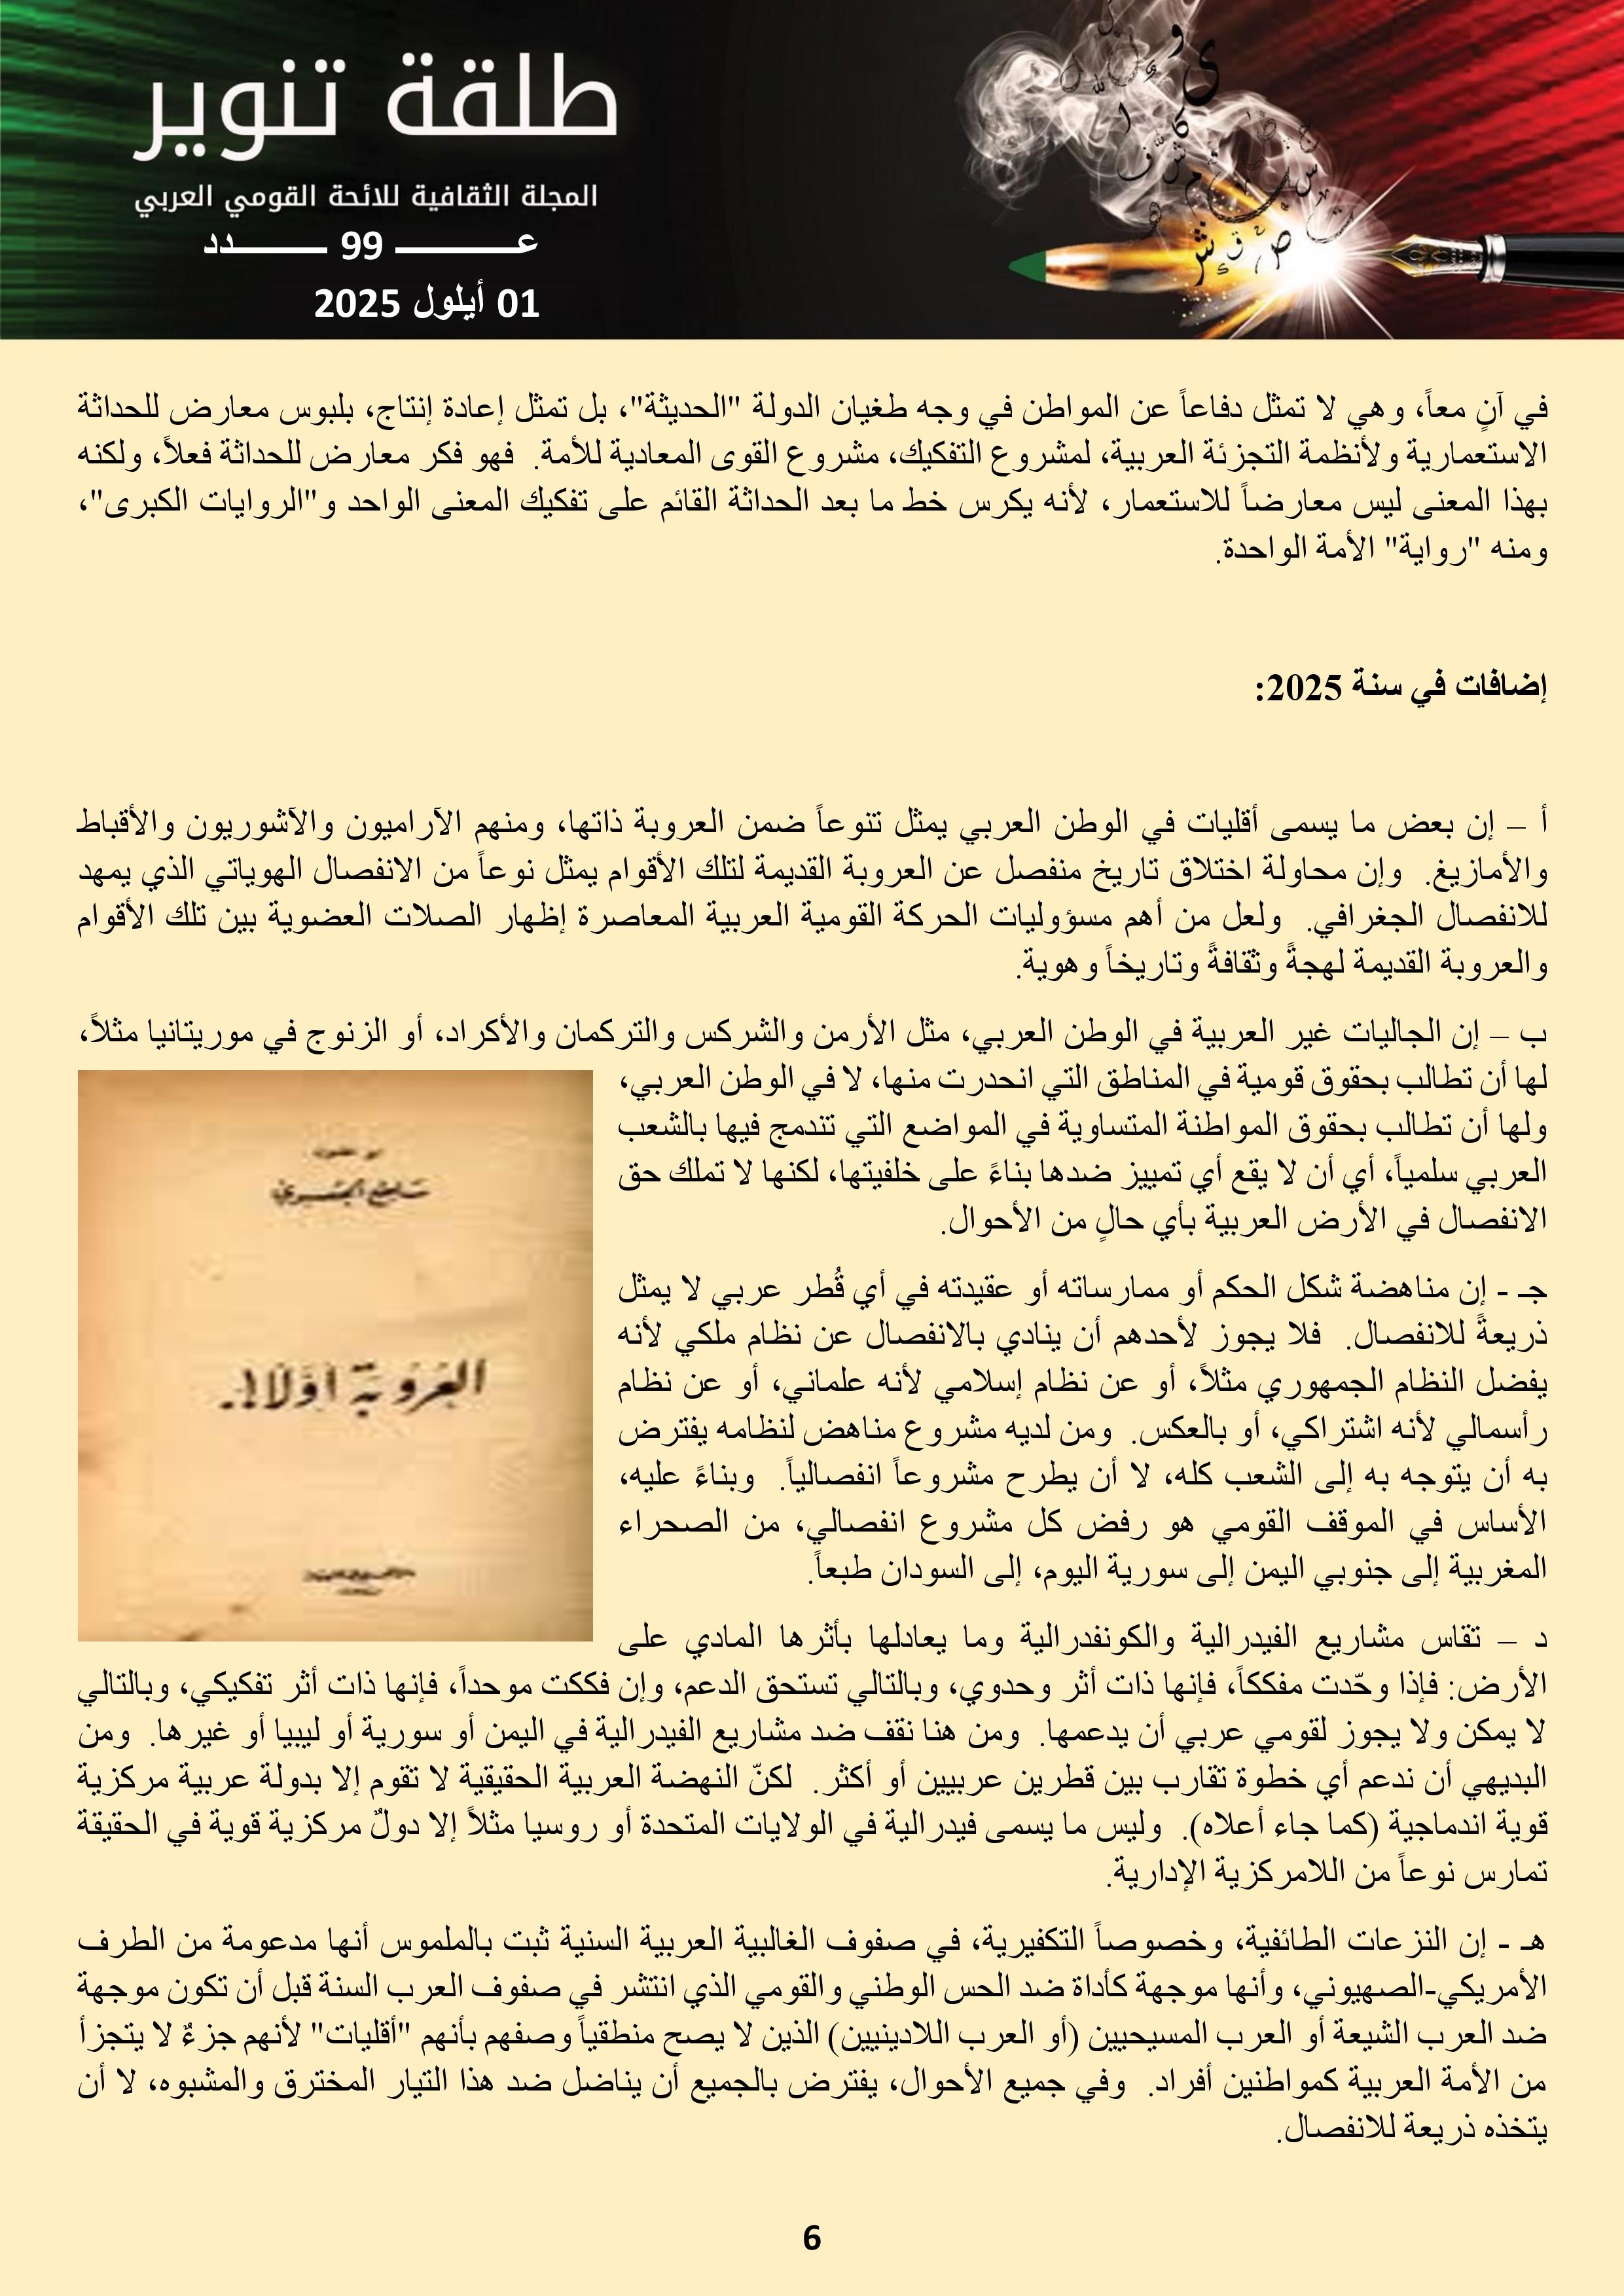 طلقة تنوير
المجلة الثقافية للائحة القومي العربي
عـــــــــدد 99
01 أيلول 2025
في آنٍ معاً، وهي لا تمثل دفاعاً عن المواطن في وجه طغيان الدولة "الحديثة"، بل تمثل إعادة إنتاج، بلبوس معارض للحداثة
الاستعمارية ولأنظمة التجزئة العربية، لمشروع التفكيك، مشروع القوى المعادية للأمة. فهو فكر معارض للحداثة فعلاً، ولكنه
بهذا المعنى ليس معارضاً للاستعمار، لأنه يكرس خط ما بعد الحداثة القائم على تفكيك المعنى الواحد و"الروايات الكبرى"،
ومنه "رواية" الأمة الواحدة.
إضافات في سنة 2025:
أ – إن بعض ما يسمى أقليات في الوطن العربي يمثل تنوعاً ضمن العروبة ذاتها، ومنهم الآراميون والآشوريون والأقباط
والأمازيغ. وإن محاولة اختلاق تاريخ منفصل عن العروبة القديمة لتلك الأقوام يمثل نوعاً من الانفصال الهوياتي الذي يمهد
للانفصال الجغرافي. ولعل من أهم مسؤوليات الحركة القومية العربية المعاصرة إظهار الصلات العضوية بين تلك الأقوام
والعروبة القديمة لهجةً وثقافةً وتاريخاً وهوية.
ب – إن الجاليات غير العربية في الوطن العربي، مثل الأرمن والشركس والتركمان والأكراد، أو الزنوج في موريتانيا مثلاً،
لها أن تطالب بحقوق قومية في المناطق التي انحدرت منها، لا في الوطن العربي،
ولها أن تطالب بحقوق المواطنة المتساوية في المواضع التي تندمج فيها بالشعب
العربي سلمياً، أي أن لا يقع أي تمييز ضدها بناءً على خلفيتها، لكنها لا تملك حق
الانفصال في الأرض العربية بأي حالٍ من الأحوال.
ساطع الحصري
العروبة أولاً!..
جـ - إن مناهضة شكل الحكم أو ممارساته أو عقيدته في أي قُطر عربي لا يمثل
ذريعةً للانفصال. فلا يجوز لأحدهم أن ينادي بالانفصال عن نظام ملكي لأنه
يفضل النظام الجمهوري مثلاً، أو عن نظام إسلامي لأنه علماني، أو عن نظام
رأسمالي لأنه اشتراكي، أو بالعكس. ومن لديه مشروع مناهض لنظامه يفترض
به أن يتوجه به إلى الشعب كله، لا أن يطرح مشروعاً انفصالياً. وبناءً عليه،
الأساس في الموقف القومي هو رفض كل مشروع انفصالي، من الصحراء
المغربية إلى جنوبي اليمن إلى سورية اليوم، إلى السودان طبعاً.
د – تقاس مشاريع الفيدرالية والكونفدرالية وما يعادلها بأثرها المادي على
الأرض: فإذا وحّدت مفككاً، فإنها ذات أثر وحدوي، وبالتالي تستحق الدعم، وإن فككت موحداً، فإنها ذات أثر تفكيكي، وبالتالي
لا يمكن ولا يجوز لقومي عربي أن يدعمها. ومن هنا نقف ضد مشاريع الفيدرالية في اليمن أو سورية أو ليبيا أو غيرها. ومن
البديهي أن ندعم أي خطوة تقارب بين قطرين عربيين أو أكثر. لكنّ النهضة العربية الحقيقية لا تقوم إلا بدولة عربية مركزية
قوية اندماجية (كما جاء أعلاه). وليس ما يسمى فيدرالية في الولايات المتحدة أو روسيا مثلاً إلا دولٌ مركزية قوية في الحقيقة
تمارس نوعاً من اللامركزية الإدارية.
هـ - إن النزعات الطائفية، وخصوصاً التكفيرية، في صفوف الغالبية العربية السنية ثبت بالملموس أنها مدعومة من الطرف
الأمريكي-الصهيوني، وأنها موجهة كأداة ضد الحس الوطني والقومي الذي انتشر في صفوف العرب السنة قبل أن تكون موجهة
ضد العرب الشيعة أو العرب المسيحيين (أو العرب اللادينيين) الذين لا يصح منطقياً وصفهم بأنهم "أقليات" لأنهم جزءٌ لا يتجزأ
من الأمة العربية كمواطنين أفراد. وفي جميع الأحوال، يفترض بالجميع أن يناضل ضد هذا التيار المخترق والمشبوه، لا أن
يتخذه ذريعة للانفصال.
6